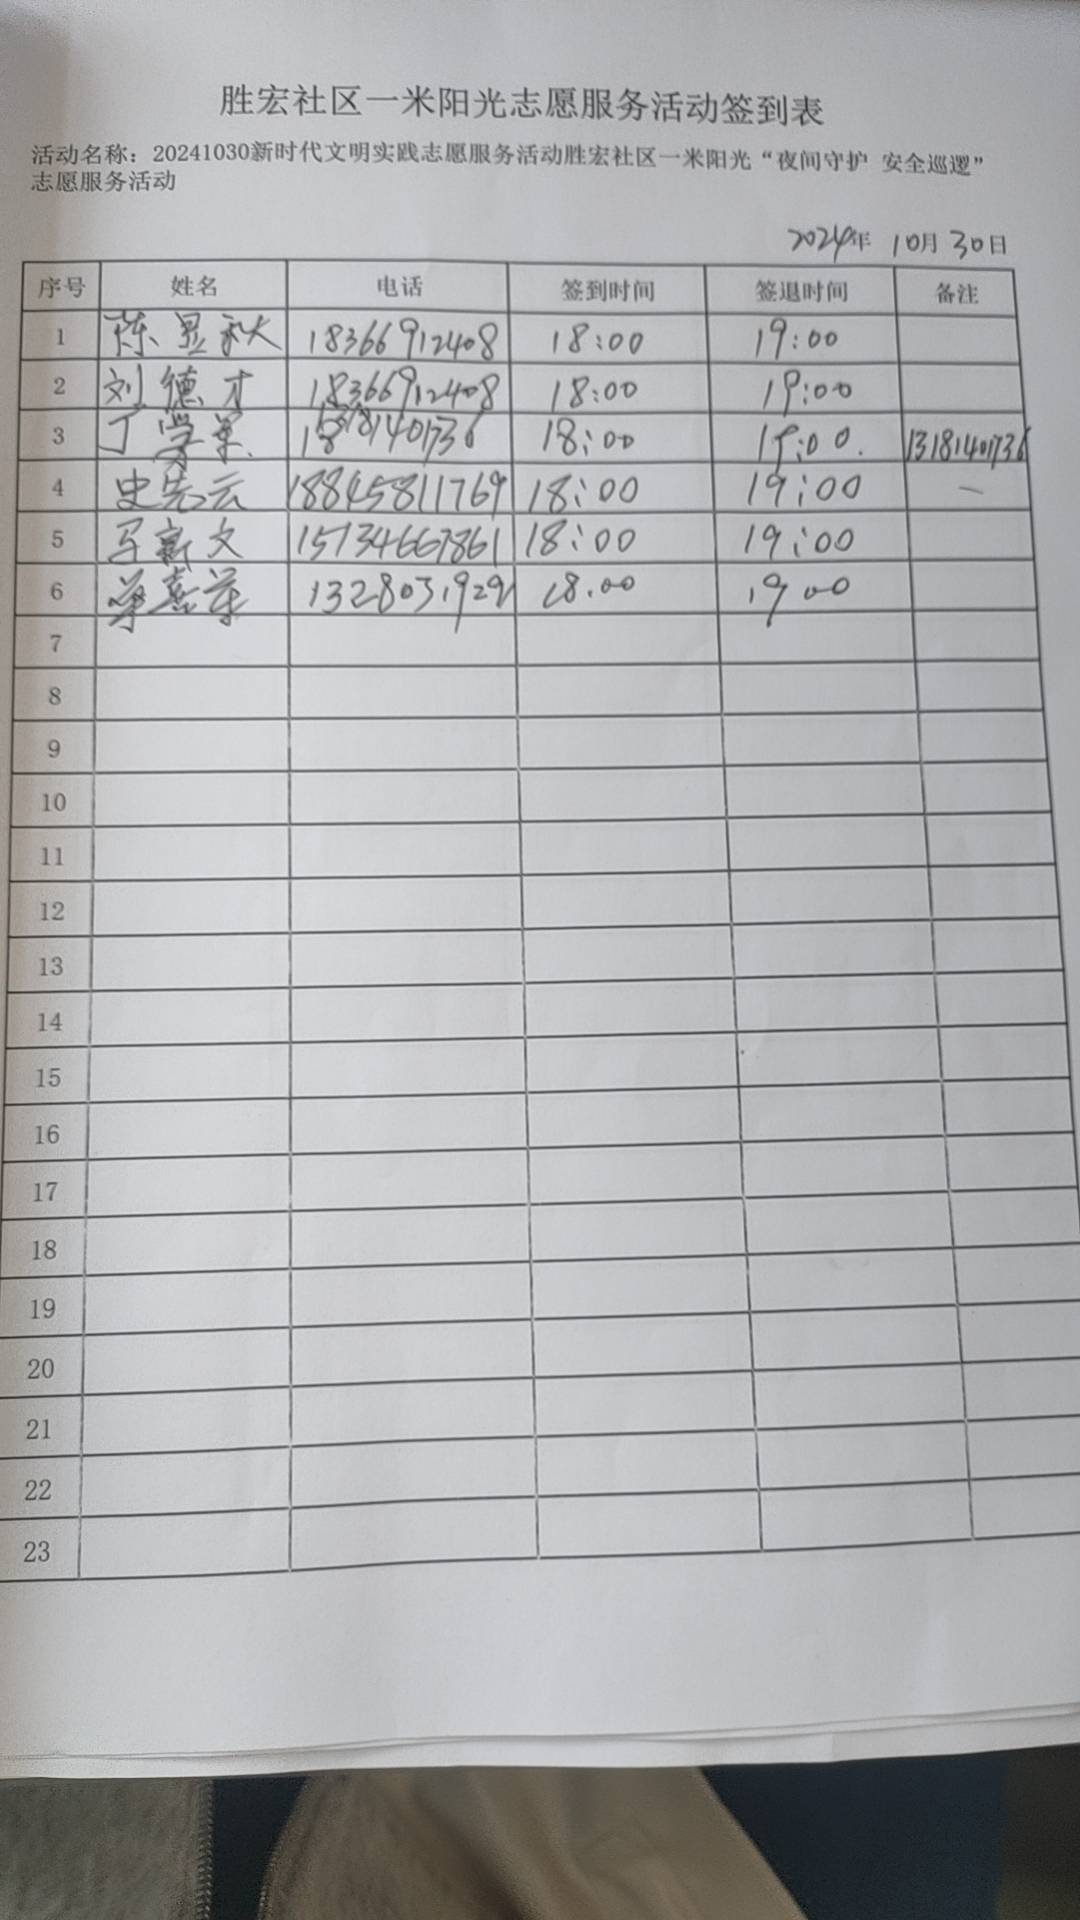 胜宏社区一米阳光志愿服务活动签到表
活动名称：20241030新时代文明实践志愿服务活动胜宏社区一米阳光“夜间守护 安全巡逻”
志愿服务活动
2024年 10月30日
序号 姓名 电话 签到时间 签退时间 备注
1 陈显 18366912408 18:00 19:00
2 刘德才 18366912408 18:00 19:00
3 丁学军 18:00 19:00. 13181401736
4 史先云 18845811769 18:00 19:00 —
5 新文 15134667861 18:00 19:00
6 1328031929 18.00 19 00
7
8
9
10
11
12
13
14
15
16
17
18
19
20
21
22
23